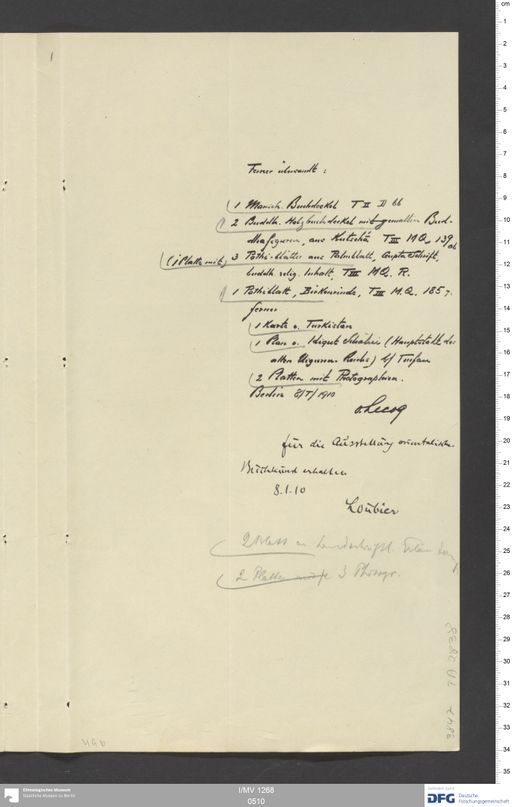 1
Ferner übersandt:
1 Manich. Buchdeckel T II D bb
2 Buddh. Holzbuchdeckel mit gemalten Bud-
dhafiguren, aus Kutscha T III MQ 139 ab
(1 Platte mit) 3 Pothi-blätter aus Palmblatt, Gupta Schrift,
buddh. relig. Inhalt, T III MQ. R.
1 Pothiblatt, Birkenrinde, T III M.Q. 185
ferner
1 Karte v. Turkistan
1 Plan v. Idigut Schähri (Hauptstadt des
alten Uiguren Reichs) b/ Turfan
2 Platten mit Photographien.
Berlin 8/I/1910
v. Lecoq
für die Ausstellung orientalische
Buchkunst erhalten
8.1.10
Loubier
2 Blatt
2 Platten 3 Photogr.
Ethnologisches Museum
Staatliche Museen zu Berlin
I/MV 1268
0510
gefördert durch
DFG Deutsche
Forschungsgemeinschaft
cm
1
2
3
4
5
6
7
8
9
10
11
12
13
14
15
16
17
18
19
20
21
22
23
24
25
26
27
28
29
30
31
32
33
34
35